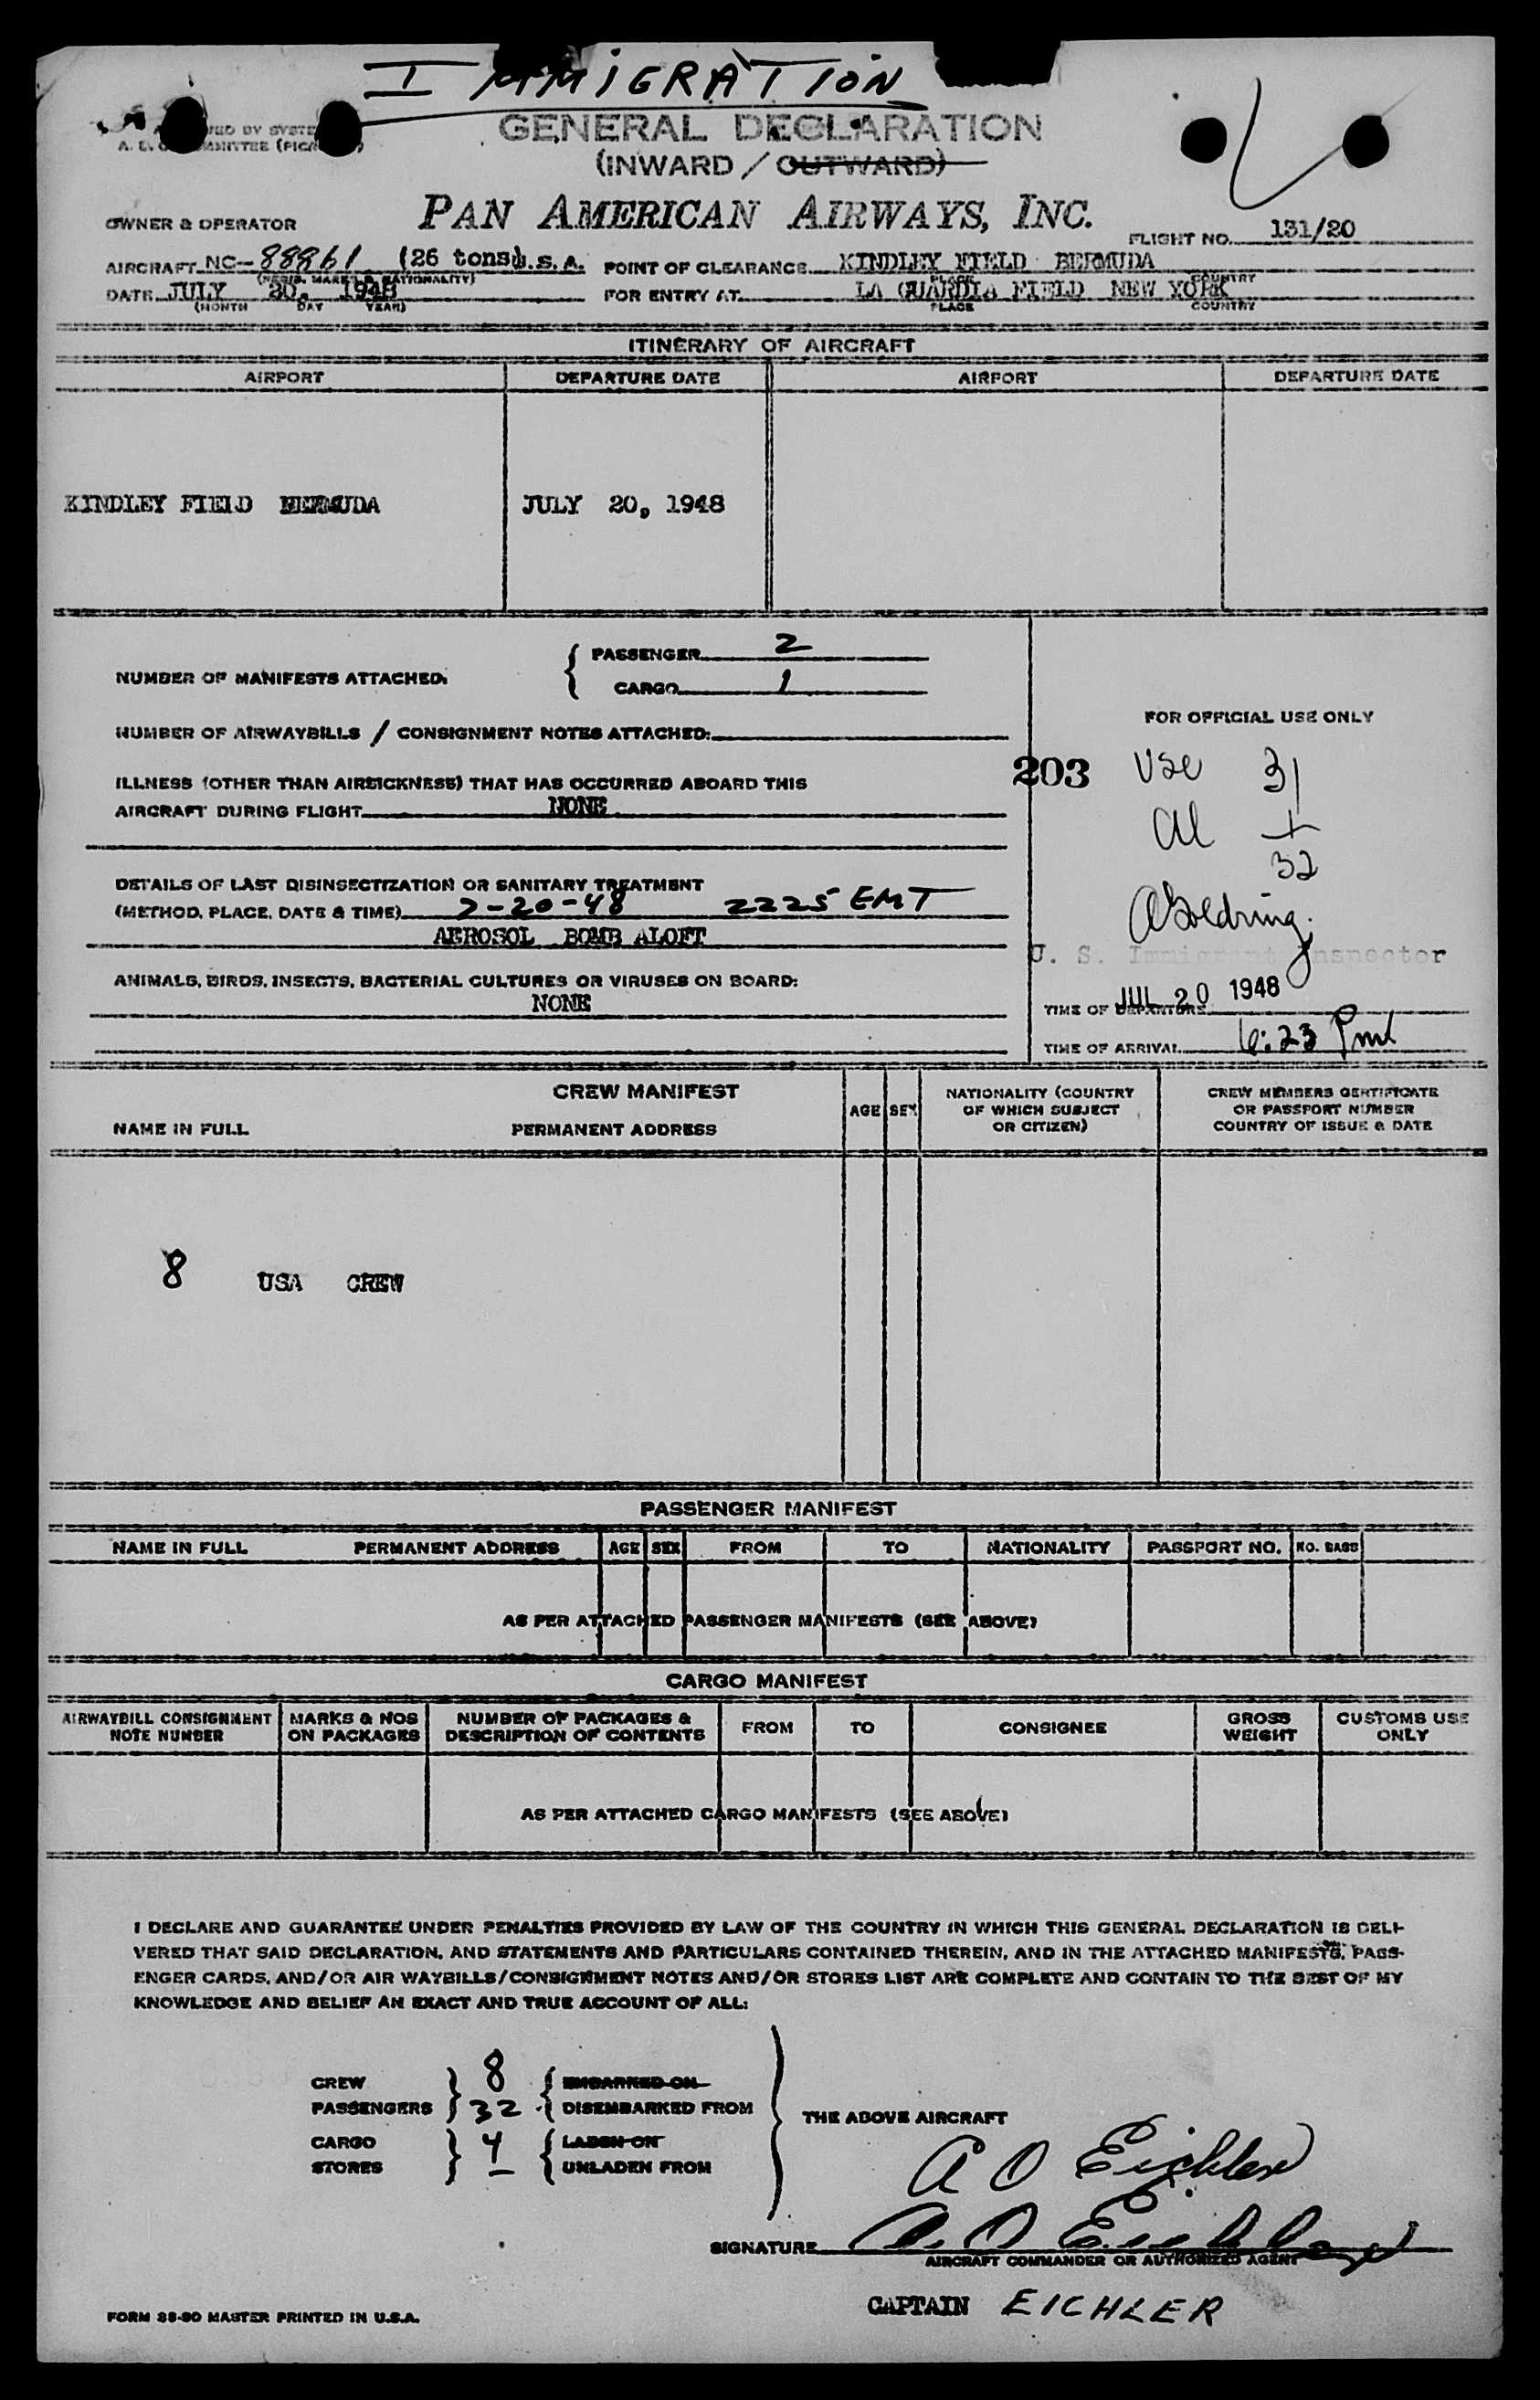 IMMIGRATION
GENERAL DECLARATION
(INWARD / OUTWARD)
OWNER & OPERATOR
PAN AMERICAN AIRWAYS, INC.
FLIGHT NO. 131/20
AIRCRAFT NC-88861 (26 tons) U.S.A. POINT OF CLEARANCE KINDLEY FIELD BERMUDA
(REGIS. MARKS & NATIONALITY) PLACE COUNTRY
DATE JULY 20, 1948 FOR ENTRY AT LA GUARDIA FIELD NEW YORK
(MONTH DAY YEAR) PLACE COUNTRY
ITINERARY OF AIRCRAFT
AIRPORT DEPARTURE DATE AIRPORT DEPARTURE DATE
KINDLEY FIELD BERMUDA JULY 20, 1948
NUMBER OF MANIFESTS ATTACHED.
PASSENGER 2
CARGO 1
NUMBER OF AIRWAYBILLS / CONSIGNMENT NOTES ATTACHED:
ILLNESS (OTHER THAN AIRSICKNESS) THAT HAS OCCURRED ABOARD THIS
AIRCRAFT DURING FLIGHT NONE
DETAILS OF LAST DISINSECTIZATION OR SANITARY TREATMENT
(METHOD, PLACE, DATE & TIME) 7-20-48 2225 GMT
AEROSOL BOMB ALOFT
ANIMALS, BIRDS, INSECTS, BACTERIAL CULTURES OR VIRUSES ON BOARD:
NONE
FOR OFFICIAL USE ONLY
203
USC 31
al 1
32
AGoldring
U. S. Immigrant Inspector
JUL 20 1948
TIME OF DEPARTURE
TIME OF ARRIVAL 6:23 Pm
CREW MANIFEST
NAME IN FULL PERMANENT ADDRESS AGE SEX NATIONALITY (COUNTRY OF WHICH SUBJECT OR CITIZEN) CREW MEMBERS CERTIFICATE OR PASSPORT NUMBER COUNTRY OF ISSUE & DATE
8 USA CREW
PASSENGER MANIFEST
NAME IN FULL PERMANENT ADDRESS AGE SEX FROM TO NATIONALITY PASSPORT NO. NO. BAGS
AS PER ATTACHED PASSENGER MANIFESTS (SEE ABOVE)
CARGO MANIFEST
AIRWAYBILL CONSIGNMENT NOTE NUMBER MARKS & NOS ON PACKAGES NUMBER OF PACKAGES & DESCRIPTION OF CONTENTS FROM TO CONSIGNEE GROSS WEIGHT CUSTOMS USE ONLY
AS PER ATTACHED CARGO MANIFESTS (SEE ABOVE)
I DECLARE AND GUARANTEE UNDER PENALTIES PROVIDED BY LAW OF THE COUNTRY IN WHICH THIS GENERAL DECLARATION IS DELI-
VERED THAT SAID DECLARATION, AND STATEMENTS AND PARTICULARS CONTAINED THEREIN, AND IN THE ATTACHED MANIFESTS, PASS-
ENGER CARDS, AND/OR AIR WAYBILLS/CONSIGNMENT NOTES AND/OR STORES LIST ARE COMPLETE AND CONTAIN TO THE BEST OF MY
KNOWLEDGE AND BELIEF AN EXACT AND TRUE ACCOUNT OF ALL:
CREW 8 EMBARKED ON
PASSENGERS 32 DISEMBARKED FROM
THE ABOVE AIRCRAFT
CARGO 4 LADEN ON
STORES — UNLADEN FROM
A O Eichler
SIGNATURE A. O. Eichler
AIRCRAFT COMMANDER OR AUTHORIZED AGENT
CAPTAIN EICHLER
FORM 88-90 MASTER PRINTED IN U.S.A.